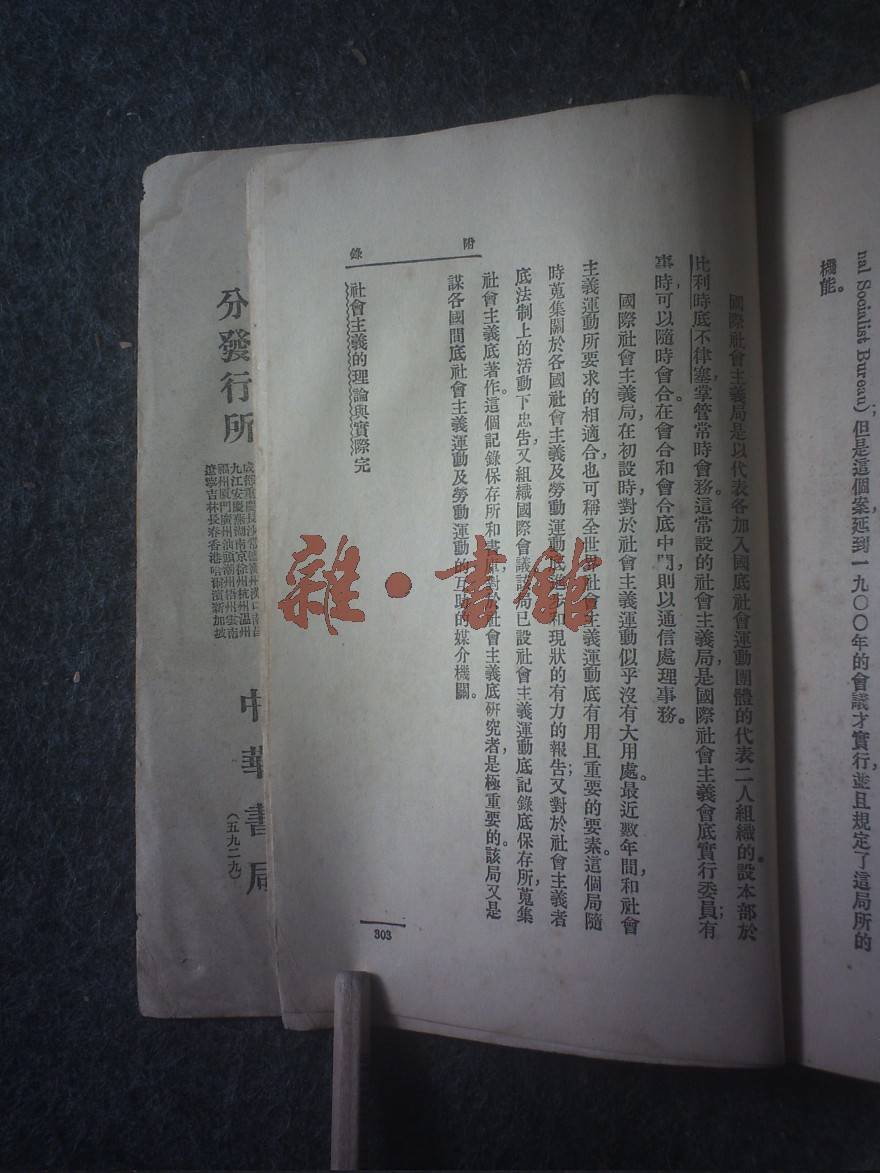 nal Socialist Bureau）；但是這個案延到一九〇〇年的會議才實行，並且規定了這局所的
機能。
國際社會主義局是以代表各加入國底社會運動團體的代表二人組織的。設本部於
比利時底不律塞，掌管常時會務；這常設的社會主義局，是國際社會主義會底實行委員；有
事時，可以隨時會合。在會合和會合底中間，則以通信處理事務。
國際社會主義局，在初設時，對於社會主義運動似乎沒有大用處。最近數年間，和社會
主義運動所要求的相適合，也可稱全世界社會主義運動底有用且重要的要素。這個局隨
時蒐集關於各國社會主義及勞動運動底進步和現狀的有力的報告；又對於社會主義者
底法制上的活動下忠告，又組織國際會議。該局已設社會主義運動底記錄底保存所，蒐集
社會主義底著作。這個記錄保存所和書庫，對於社會主義底研究者，是極重要的。該局又是
謀各國間底社會主義運動及勞動運動的互助的媒介機關。
社會主義的理論與實際完
附錄
303
分發行所
成都重慶長沙常德漢口南昌
九江安慶蕪湖南京徐州杭州溫州
福州廈門廣州汕頭潮州梧州雲南
遼寧吉林長春香港哈爾濱新加坡
中華書局
（五九二九）
雜·書館